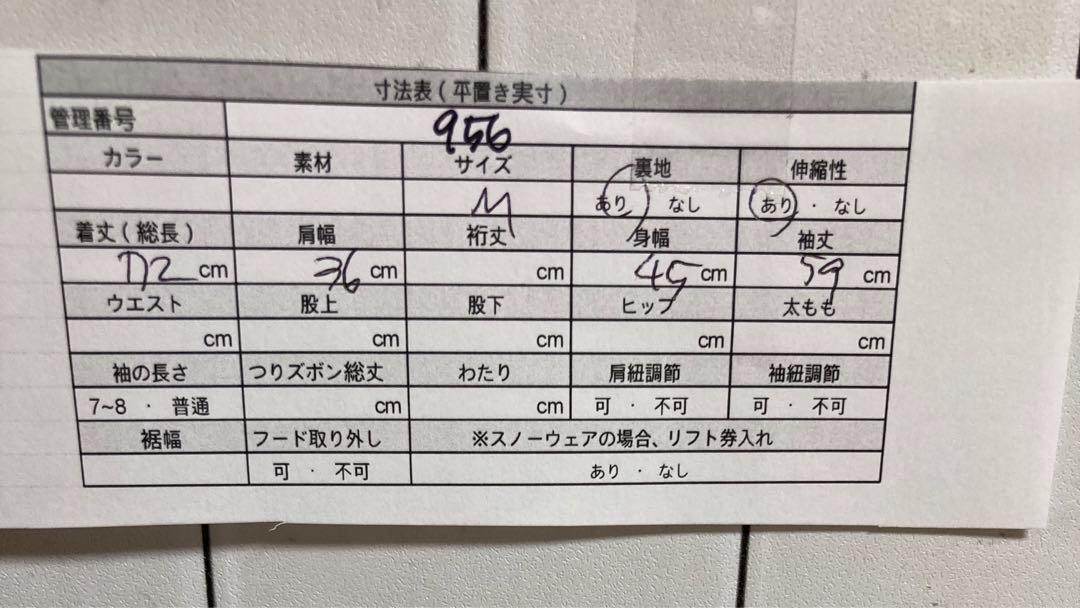 寸法表(平置き実寸)
管理番号 956
カラー 素材 サイズ 裏地 伸縮性
M あり なし あり ・ なし
着丈(総長) 肩幅 裄丈 身幅 袖丈
72 cm 36 cm cm 45 cm 59 cm
ウエスト 股上 股下 ヒップ 太もも
cm cm cm cm cm
袖の長さ つりズボン総丈 わたり 肩紐調節 袖紐調節
7~8 ・ 普通 cm cm 可 ・ 不可 可 ・ 不可
裾幅 フード取り外し ※スノーウェアの場合、リフト券入れ
可 ・ 不可 あり ・ なし